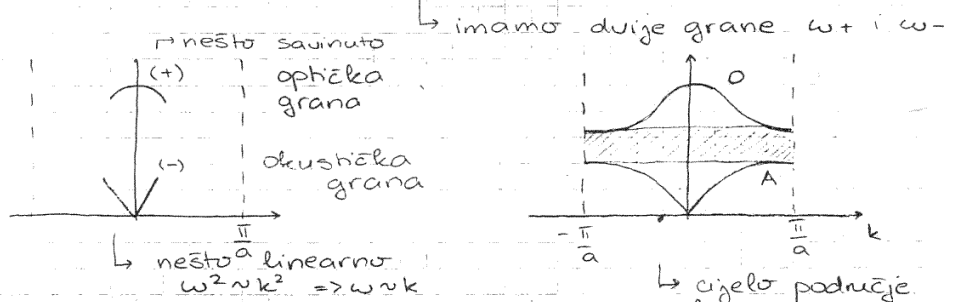 ↳ imamo dvije grane ω+ i ω-
↱ nešto savinuto
(+) optička
grana
(-) akustička
grana
π/a
↳ nešto linearno
ω² ~ k² => ω ~ k
O
A
-π/a
π/a
k
↳ cijelo područje